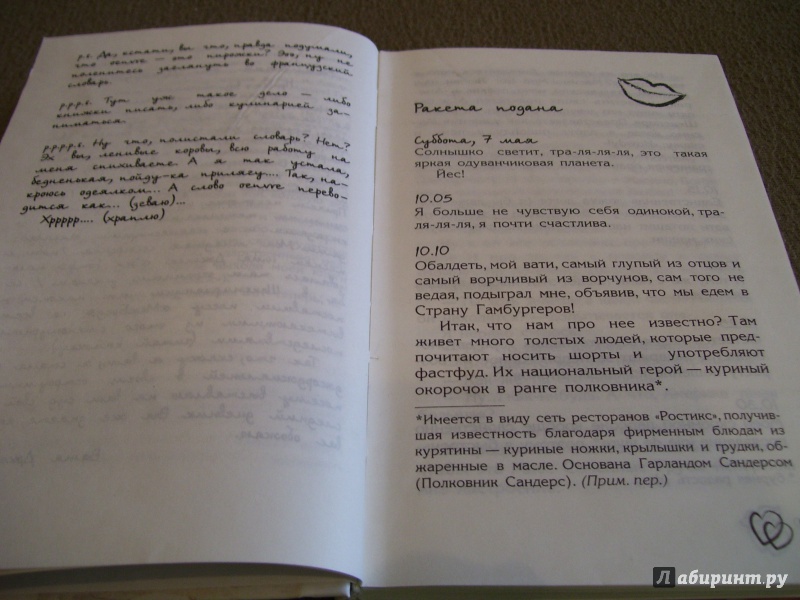 р.s. Да, кстати, вы что, правда подумали,
что oeuvre — это пирожки? Эээ, ну не
поленитесь заглянуть во французский
словарь.
p.p.s. Тут уж такое дело — либо
книжки писать, либо кулинарией за-
ниматься.
p.p.p.s. Ну что, полистали словарь? Нет?
Эх вы, ленивые коровы, всю работу на
меня спихиваете. А я так устала,
бедненькая, пойду-ка прилягу.... Так, на-
кроюсь одеялком... А слово oeuvre перево-
дится как... (зеваю)...
Хррррр.... (храплю)
Ракета подана
Суббота, 7 мая
Солнышко светит, тра-ля-ля-ля, это такая
яркая одуванчиковая планета.
Йес!
10.05
Я больше не чувствую себя одинокой, тра-
ля-ля-ля, я почти счастлива.
10.10
Обалдеть, мой вати, самый глупый из отцов и
самый ворчливый из ворчунов, сам того не
ведая, подыграл мне, объявив, что мы едем в
Страну Гамбургеров!
Итак, что нам про нее известно? Там
живет много толстых людей, которые пред-
почитают носить шорты и употребляют
фастфуд. Их национальный герой — куриный
окорочок в ранге полковника*.
*Имеется в виду сеть ресторанов «Ростикс», получив-
шая известность благодаря фирменным блюдам из
курятины — куриные ножки, крылышки и грудки, об-
жаренные в масле. Основана Гарландом Сандерсом
(Полковник Сандерс). (Прим. пер.)
Лабиринт.ру